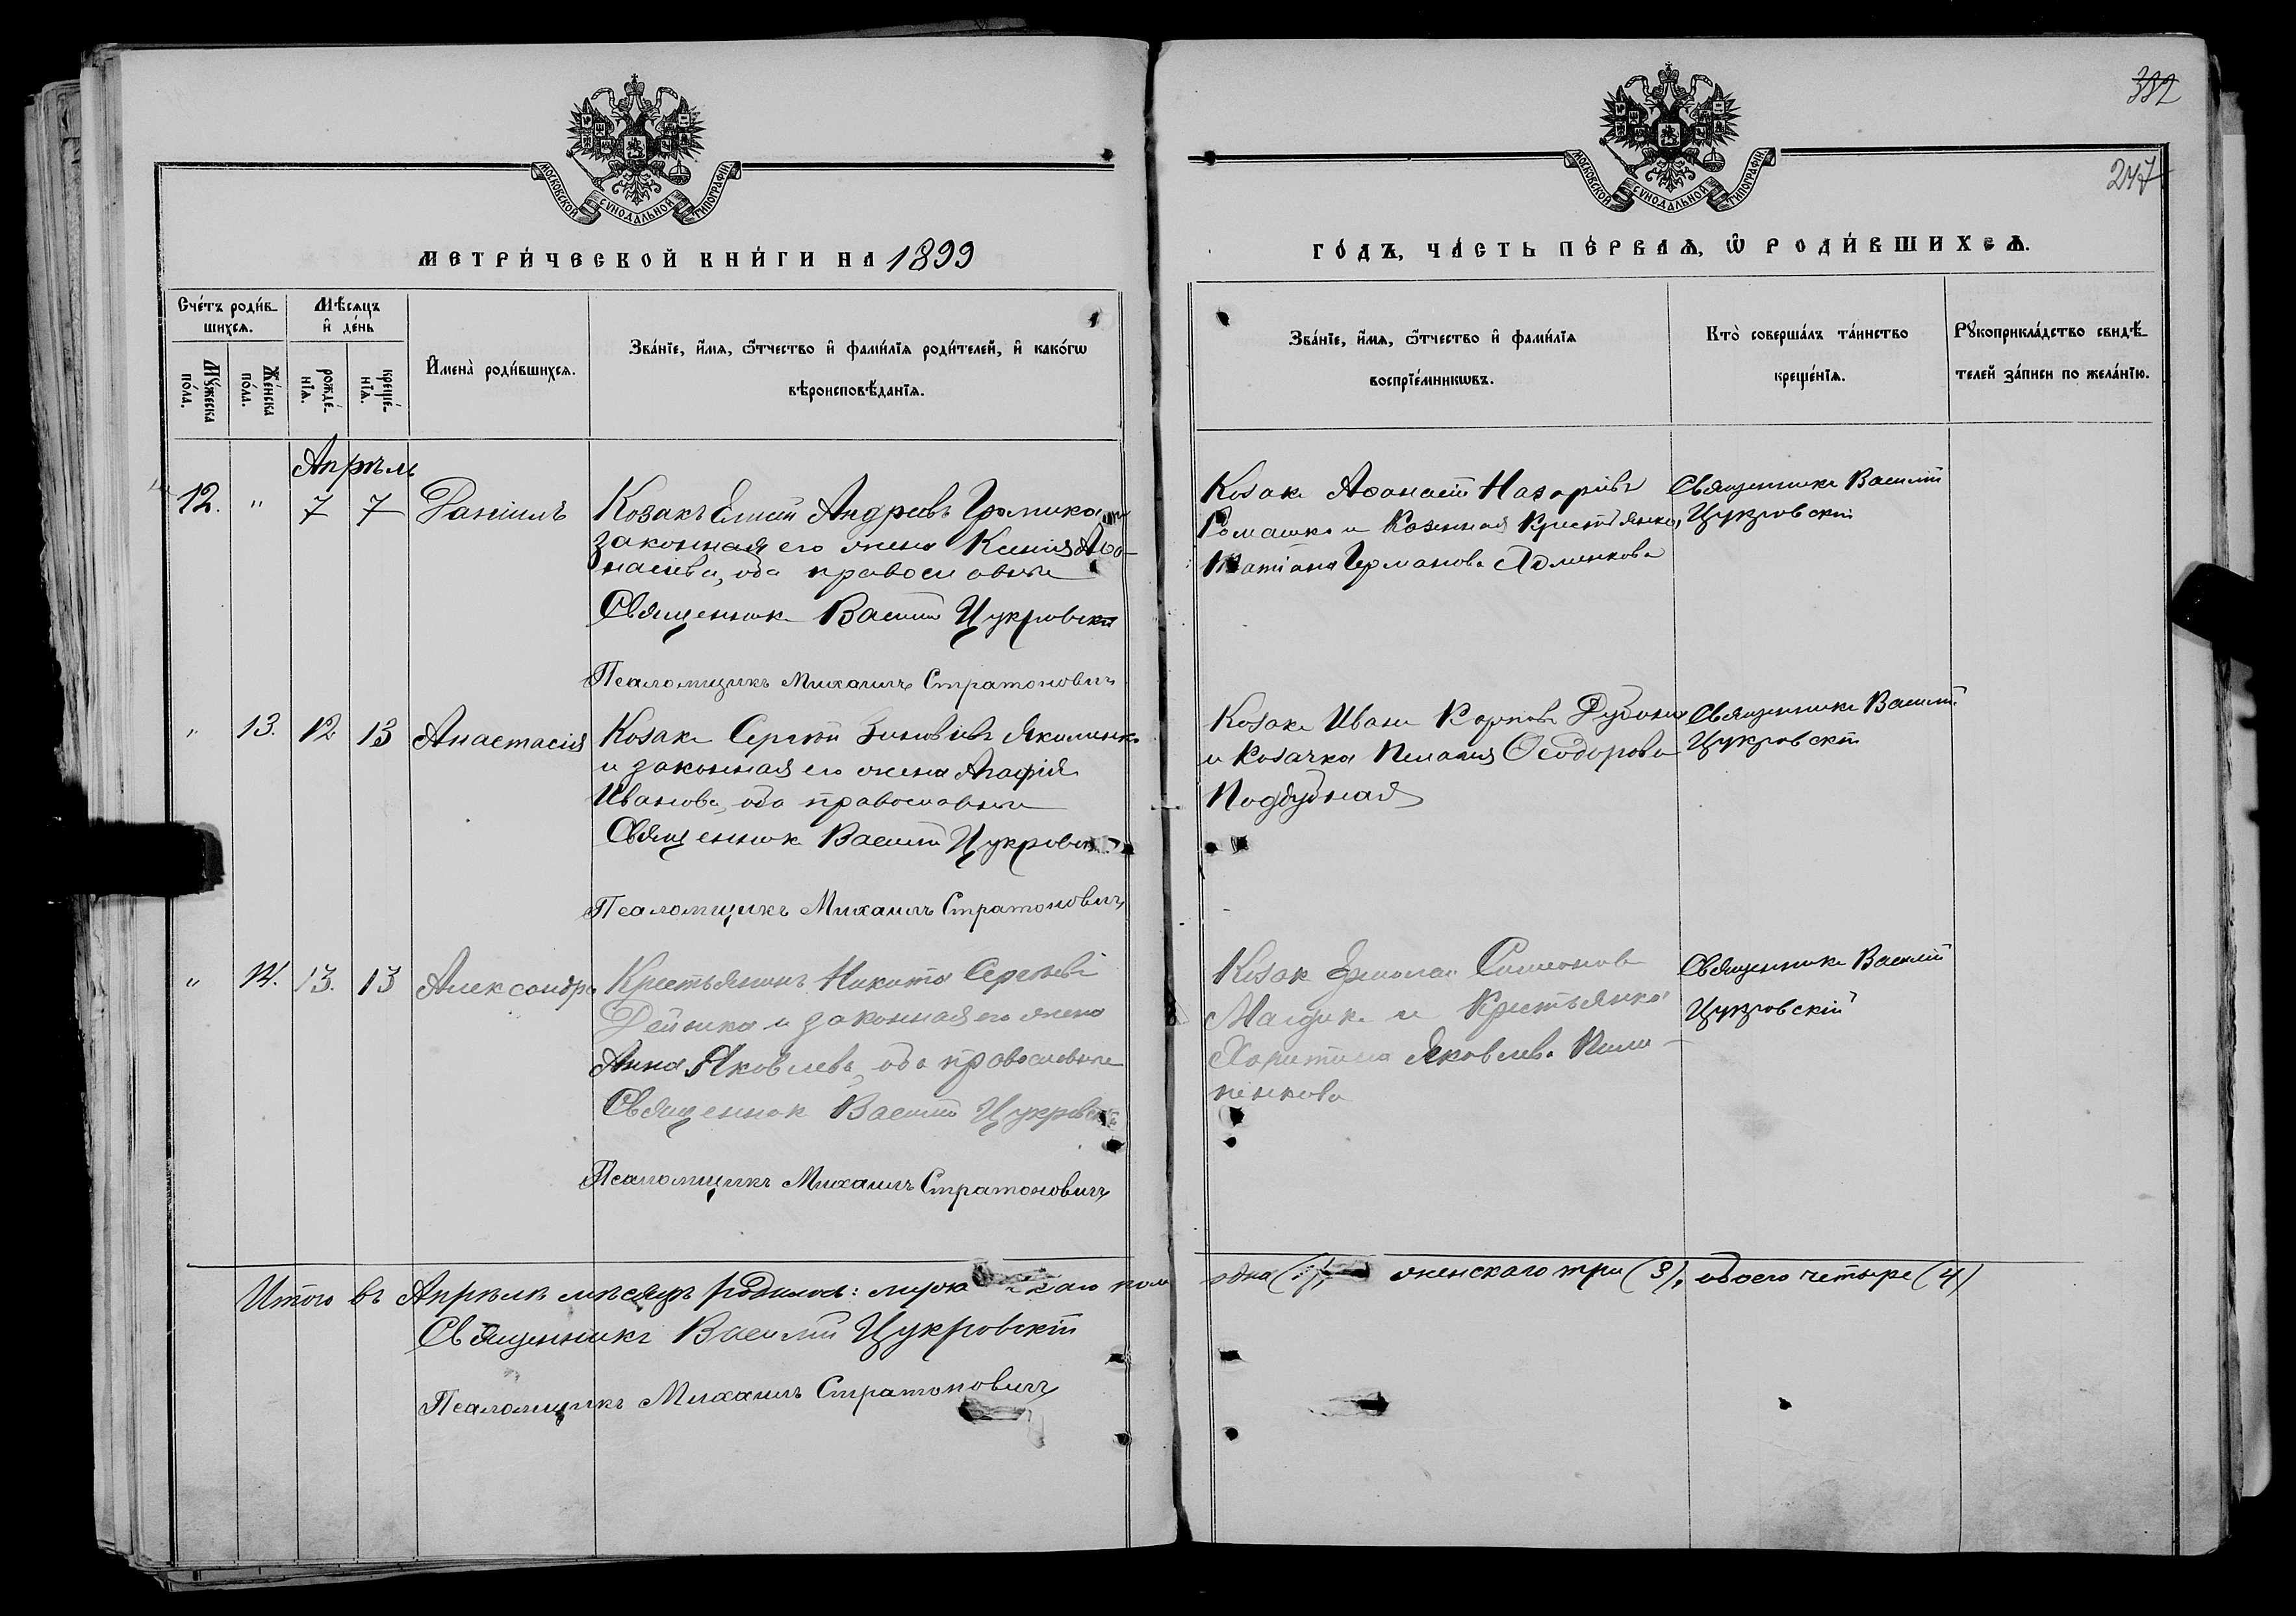 332
247
МОСКОВСКОЙ СѴНОДАЛЬНОЙ ТИПОГРАФІИ
МОСКОВСКОЙ СѴНОДАЛЬНОЙ ТИПОГРАФІИ
МЕТРИ́ЧЕСКОЙ КНИ́ГИ НА 1899
ГО́ДЪ, ЧА́СТЬ ПЕ́РВАѦ, Ѡ҆ РОДИ́ВШИХСѦ.
Сче́тъ роди́вшихсѧ.
Мꙋ́жеска по́ла.
Же́нска по́ла.
Мѣ́сѧцъ и҆ де́нь
рожде́нїѧ.
креще́нїѧ.
И҆мена̀ роди́вшихсѧ.
Зва́нїе, и҆́мѧ, ѻ҆́тчество и҆ фами́лїѧ роди́телей, и҆ како́гѡ
вѣроисповѣ́данїѧ.
Зва́нїе, и҆́мѧ, ѻ҆́тчество и҆ фами́лїѧ
воспрїе́мникѡвъ.
Кто̀ соверша́лъ та́инство
креще́нїѧ.
Рꙋкоприкла́дство свидѣ́-
телей за́писи по жела́нїю.
Апрѣль
12. " 7 7 Даніилъ
Козакъ Елисей Андреевъ
законная его жена Ксенія Аѳа-
насіева, оба православные
Священникъ Василій Цукровскій
Псаломщикъ Михаилъ Стратоновичъ
Козакъ Аѳанасій Назаріевъ
Ромашко и Козенная Крестьянка
Татіана Германова
Священникъ Василій
Цукровскій
" 13. 12 13 Анастасія
Козакъ Сергій Зиновіевъ Якименко
и законная его жена Агафія
Иванова, оба православные
Священникъ Василій Цукровскій
Псаломщикъ Михаилъ Стратоновичъ
Козакъ Иванъ Карповъ
и Козачка Пелагія Ѳеодорова
Поддубная
Священникъ Василій
Цукровскій
" 14. 13. 13 Александра
Крестьянинъ Никита Сергіевъ
Дейнека и законная его жена
Анна Яковлева, оба православные
Священникъ Василій Цукровскій
Псаломщикъ Михаилъ Стратоновичъ
Козакъ Ермолай Симоновъ
и Крестьянка
Харитина Яковлева Пили-
пенкова
Священникъ Василій
Цукровскій
Итого въ Апрѣлѣ мѣсяцѣ родилось: мужескаго пола одна (1), женскаго три (3), обоего четыре (4)
Священникъ Василій Цукровскій
Псаломщикъ Михаилъ Стратоновичъ